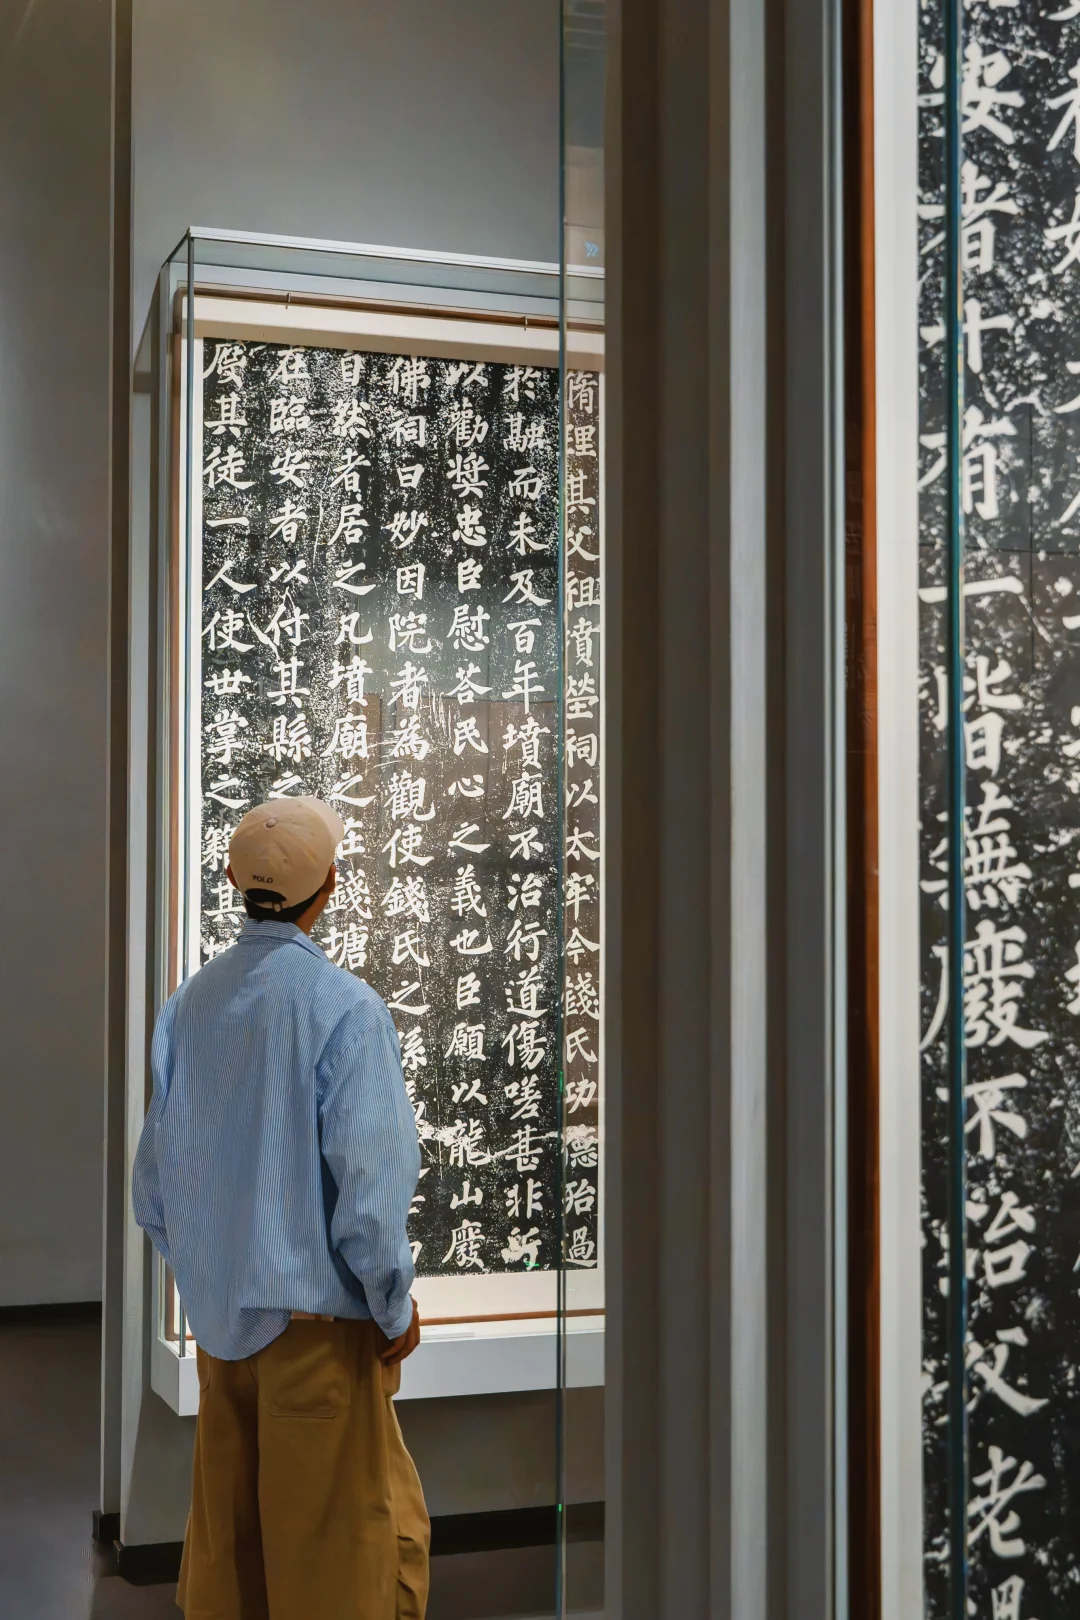 安者十有一皆蕪廢不治父老
脩理其父祖墳塋祠以太牢今錢氏功德殆過
於融而未及百年墳廟不治行道傷嗟甚非所
以勸奨忠臣慰荅民心之義也臣願以龍山廢
佛祠曰妙因院者為觀使錢氏之孫為
自然者居之凡墳廟之在錢塘
在臨安者以付其縣之
度其徒一人使世掌之籍其
POLO